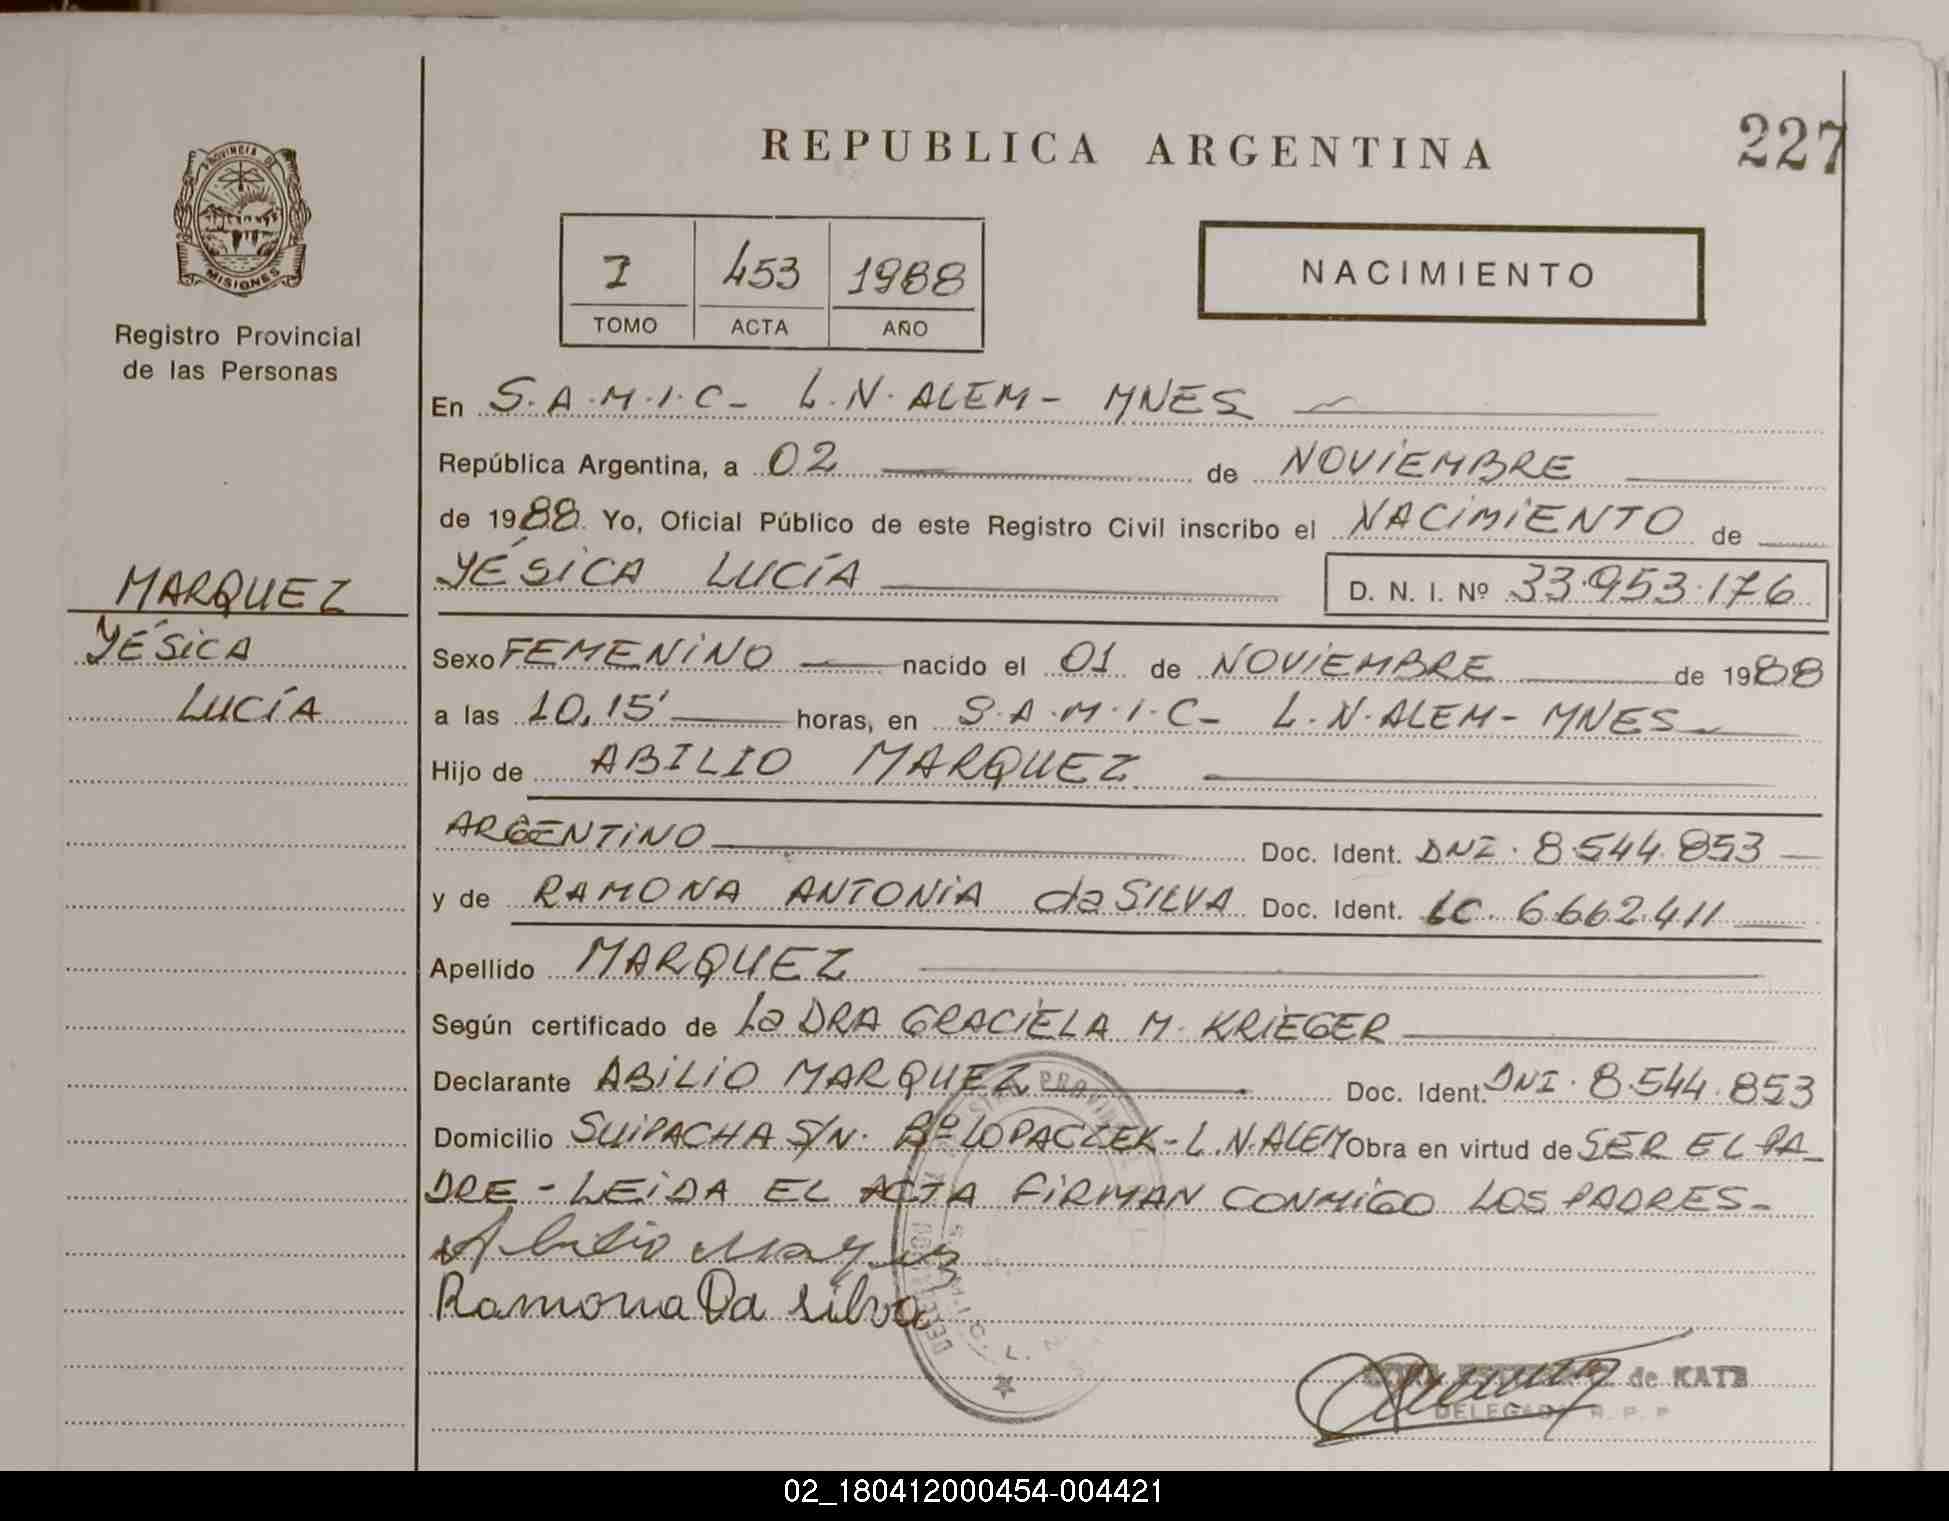 REPUBLICA ARGENTINA
227
PROVINCIA DE
MISIONES
Registro Provincial
de las Personas
I 453 1988
TOMO ACTA AÑO
NACIMIENTO
En S.A.M.I.C- L.N. ALEM- MNES
República Argentina, a 02 de NOVIEMBRE
de 1988. Yo, Oficial Público de este Registro Civil inscribo el NACIMIENTO de
YÉSICA LUCÍA D. N. I. Nº 33.953.176
MARQUEZ
YÉSICA
LUCÍA
Sexo FEMENINO nacido el 01 de NOVIEMBRE de 1988
a las 10,15' horas, en S.A.M.I.C- L.N.ALEM- MNES
Hijo de ABILIO MARQUEZ
ARGENTINO Doc. Ident. DNI. 8.544.853
y de RAMONA ANTONIA da SILVA Doc. Ident. LC. 6.662.411
Apellido MARQUEZ
Según certificado de La DRA GRACIELA M. KRIEGER
Declarante ABILIO MARQUEZ Doc. Ident. DNI. 8.544.853
Domicilio SUIPACHA S/N. Bº LOPACZEK- L.N.ALEM Obra en virtud de SER EL PA_
DRE - LEIDA EL ACTA FIRMAN CONMIGO LOS PADRES-
Abilio Marquez
Ramona Da Silva
de KATZ
DELEGADA R. P. P
02_180412000454-004421